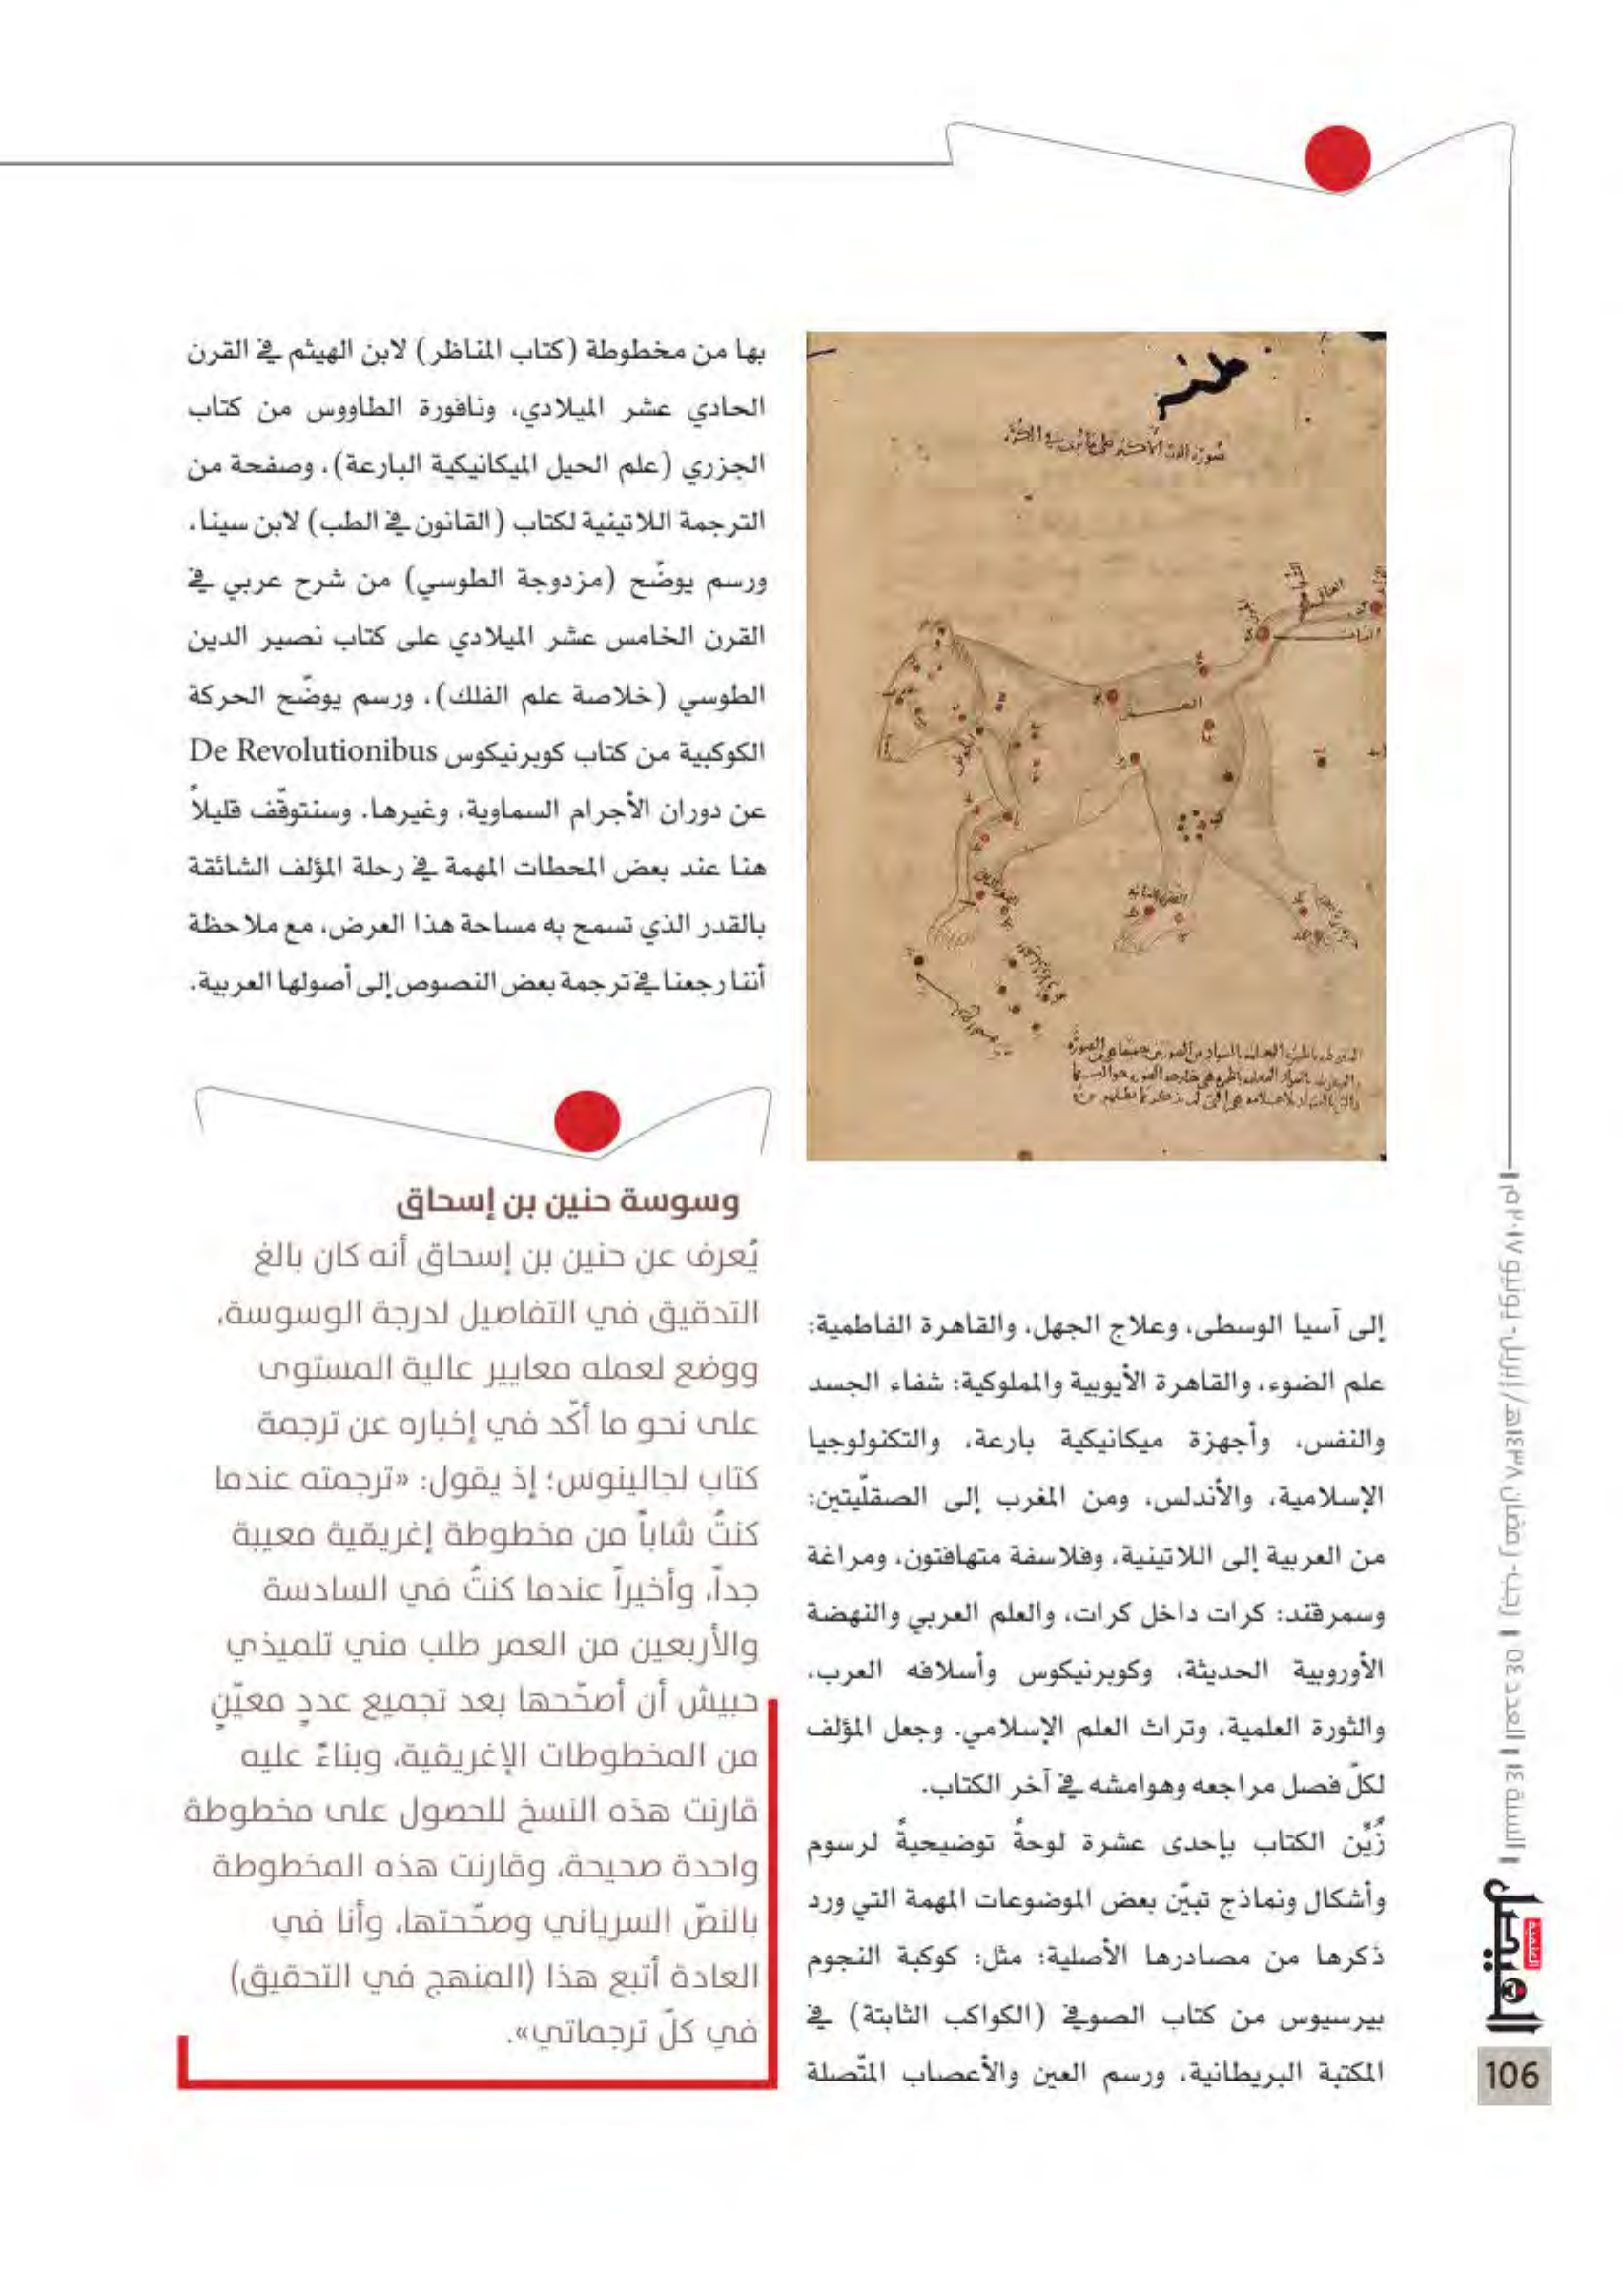 صورة الدب الأكبر على ما يرى في الكرة
إلى آسيا الوسطى، وعلاج الجهل، والقاهرة الفاطمية:
علم الضوء، والقاهرة الأيوبية والمملوكية: شفاء الجسد
والنفس، وأجهزة ميكانيكية بارعة، والتكنولوجيا
الإسلامية، والأندلس، ومن المغرب إلى الصقلّيتين:
من العربية إلى اللاتينية، وفلاسفة متهافتون، ومراغة
وسمرقند: كرات داخل كرات، والعلم العربي والنهضة
الأوروبية الحديثة، وكوبرنيكوس وأسلافه العرب،
والثورة العلمية، وتراث العلم الإسلامي. وجعل المؤلف
لكلّ فصل مراجعه وهوامشه في آخر الكتاب.
زُيِّن الكتاب بإحدى عشرة لوحةً توضيحيةً لرسوم
وأشكال ونماذج تبيّن بعض الموضوعات المهمة التي ورد
ذكرها من مصادرها الأصلية؛ مثل: كوكبة النجوم
بيرسيوس من كتاب الصوفي (الكواكب الثابتة) في
المكتبة البريطانية، ورسم العين والأعصاب المتّصلة
بها من مخطوطة (كتاب المناظر) لابن الهيثم في القرن
الحادي عشر الميلادي، ونافورة الطاووس من كتاب
الجزري (علم الحيل الميكانيكية البارعة)، وصفحة من
الترجمة اللاتينية لكتاب (القانون في الطب) لابن سينا،
ورسم يوضّح (مزدوجة الطوسي) من شرح عربي في
القرن الخامس عشر الميلادي على كتاب نصير الدين
الطوسي (خلاصة علم الفلك)، ورسم يوضّح الحركة
الكوكبية من كتاب كوبرنيكوس De Revolutionibus
عن دوران الأجرام السماوية، وغيرها. وسنتوقّف قليلاً
هنا عند بعض المحطات المهمة في رحلة المؤلف الشائقة
بالقدر الذي تسمح به مساحة هذا العرض، مع ملاحظة
أننا رجعنا في ترجمة بعض النصوص إلى أصولها العربية.
وسوسة حنين بن إسحاق
يُعرف عن حنين بن إسحاق أنه كان بالغ
التدقيق في التفاصيل لدرجة الوسوسة،
ووضع لعمله معايير عالية المستوى
على نحو ما أكّد في إخباره عن ترجمة
كتاب لجالينوس؛ إذ يقول: «ترجمته عندما
كنتُ شاباً من مخطوطة إغريقية معيبة
جداً، وأخيراً عندما كنتُ في السادسة
والأربعين من العمر طلب مني تلميذي
حبيش أن أصحّحها بعد تجميع عددٍ معيّنٍ
من المخطوطات الإغريقية، وبناءً عليه
قارنت هذه النسخ للحصول على مخطوطة
واحدة صحيحة، وقارنت هذه المخطوطة
بالنصّ السرياني وصحّحتها، وأنا في
العادة أتبع هذا (المنهج في التحقيق)
في كلّ ترجماتي».
السنة ١٤ العدد 30 رجب - رمضان ١٤٣٨هـ/ إبريل - يونيو ٢٠١٧م
الفيصل
العلمية
106